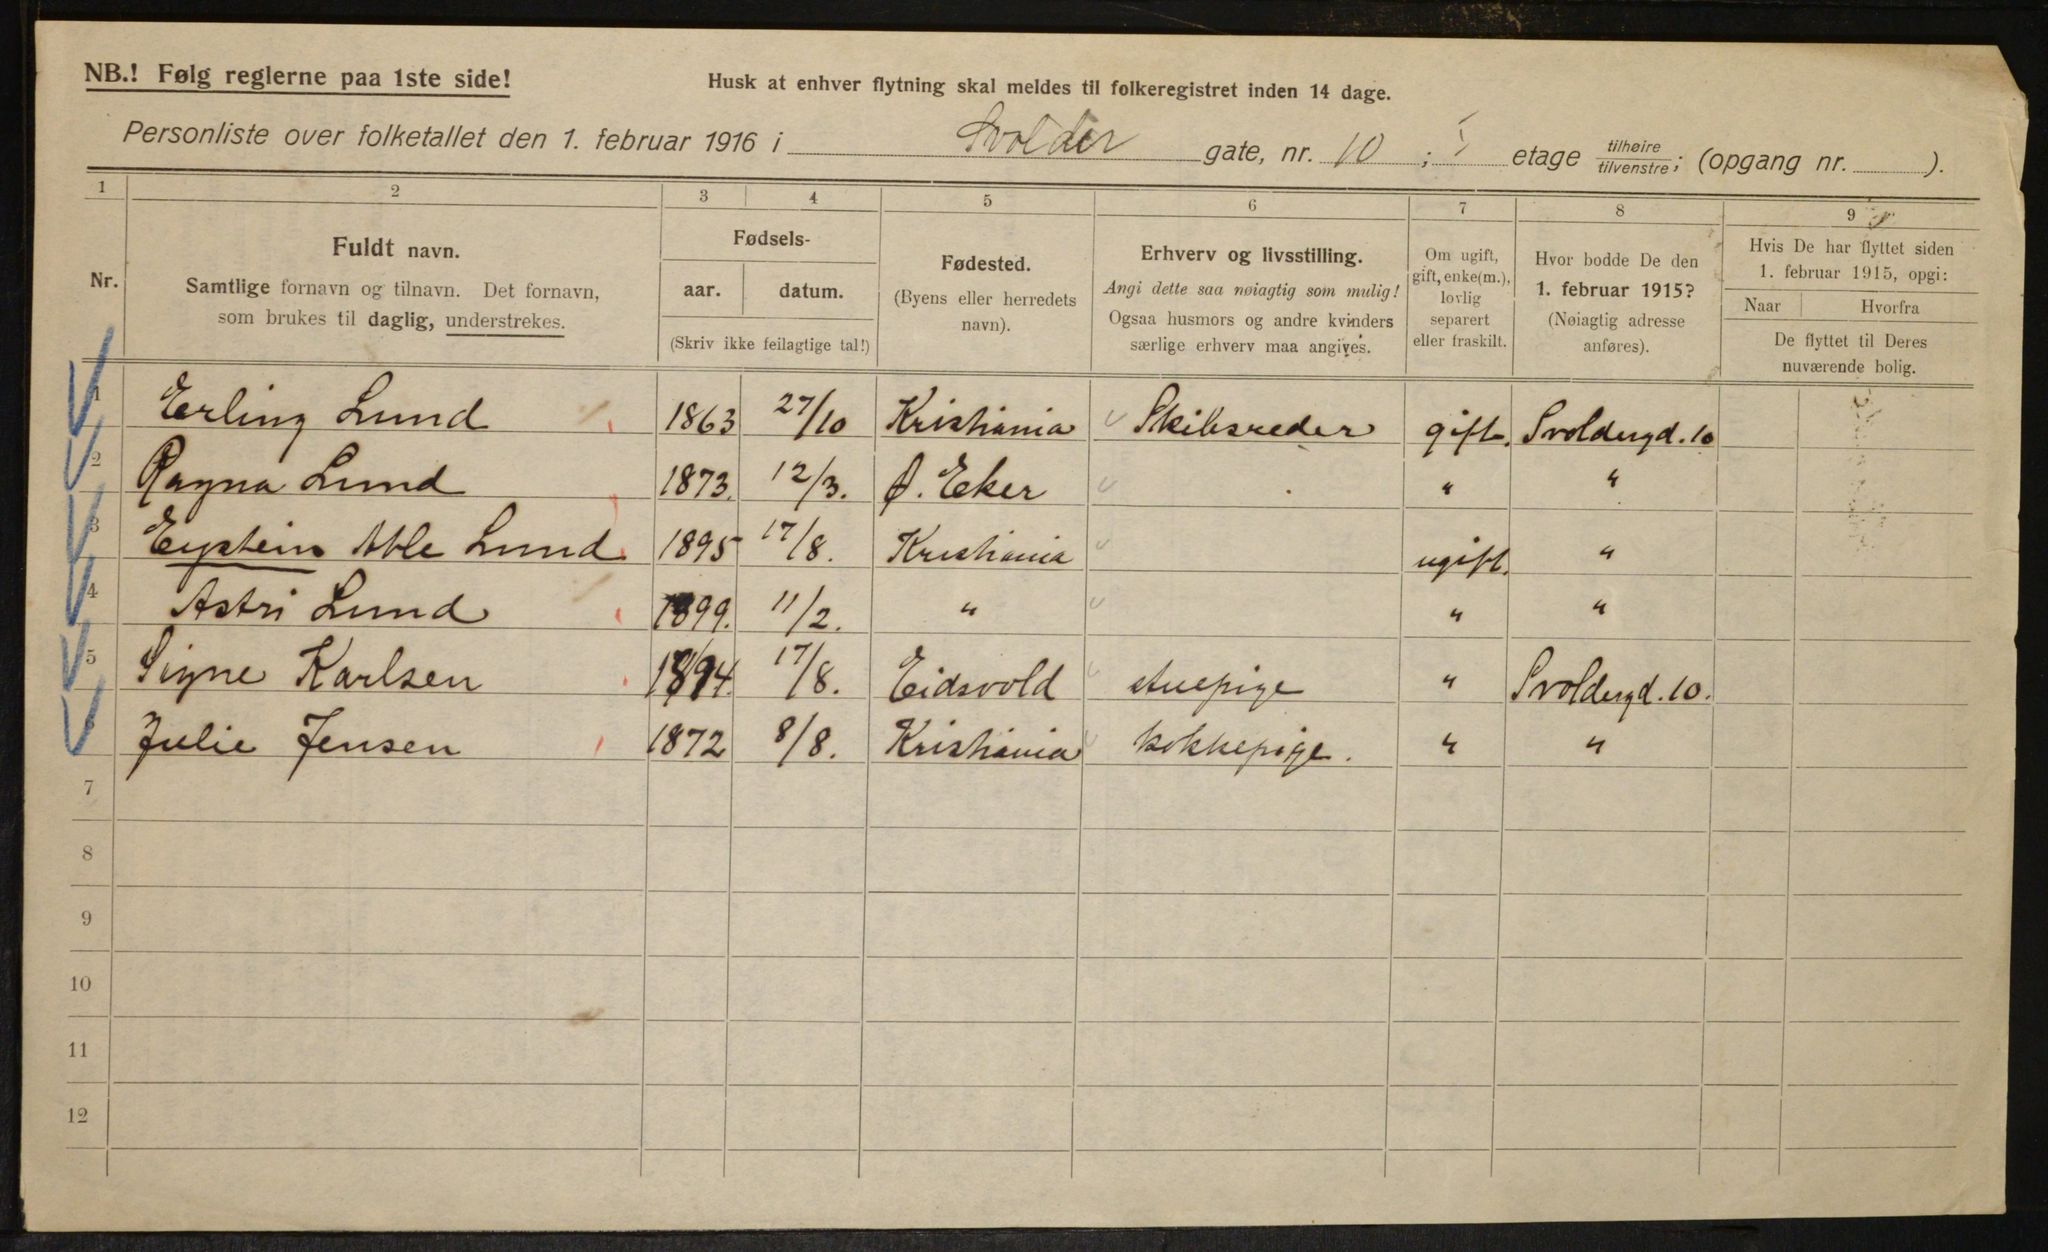 NB.! Følg reglerne paa 1ste side!
Husk at enhver flytning skal meldes til folkeregistret inden 14 dage.
Personliste over folketallet den 1. februar 1916 i Svolder gate, nr. 10 ; I etage tilhøire/tilvenstre; (opgang nr. ).
1 2 3 4 5 6 7 8 9
Nr.
Fuldt navn.
Samtlige fornavn og tilnavn. Det fornavn,
som brukes til daglig, understrekes.
Fødsels-
aar. datum.
(Skriv ikke feilagtige tal!)
Fødested.
(Byens eller herredets
navn).
Erhverv og livsstilling.
Angi dette saa nøiagtig som mulig!
Ogsaa husmors og andre kvinders
særlige erhverv maa angives.
Om ugift,
gift, enke(m.),
lovlig
separert
eller fraskilt.
Hvor bodde De den
1. februar 1915?
(Nøiagtig adresse
anføres).
Hvis De har flyttet siden
1. februar 1915, opgi:
Naar Hvorfra
De flyttet til Deres
nuværende bolig.
1 Erling Lund 1863 27/10 Kristiania Skibsreder gift. Svoldergd. 10
2 Ragna Lund 1873. 12/3. Ø. Eker " "
3 Eystein Able Lund 1895 17/8. Kristiania ugift. "
4 Astri Lund 1899. 11/2. " " "
5 Signe Karlsen 1894. 17/8. Eidsvold stuepige " Svoldergd. 10.
6 Julie Jensen 1872 8/8. Kristiania kokkepige. " "
7
8
9
10
11
12